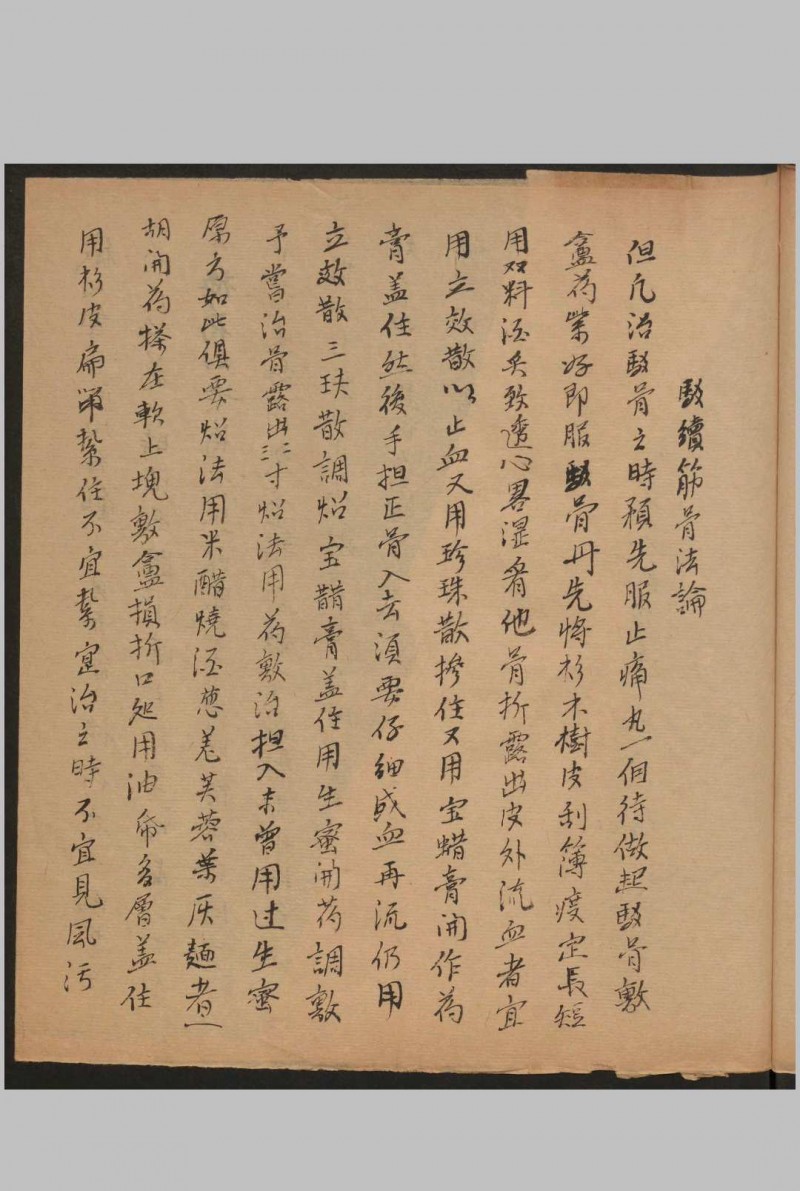 駁續筋骨法論
但凡治駁骨之時預先服止痛丸一個待做起駁骨敷
盒药業好即服駁骨丹先将杉木樹皮刮簿度定長短
用双料酒炙致透心畧湿看他骨折露出皮外流血者宜
用立效散以止血又用珍珠散摻住又用宝蜡膏開作為
膏盖住然後手担正骨入去湏要仔細或血再流仍用
立效散三玞散調焰宝醋膏盖住用生蜜開药調敷
予嘗治骨露出二三寸焰法用药敷治担入未曾用过生蜜
原方如此俱要焰法用米醋燒酒葱羌芙蓉葉灰麵煮一
胡開药搽在軟上塊敷盒損折口処用油帋多層盖住
用杉皮扁帶紮住不宜紮宽治之時不宜見風污